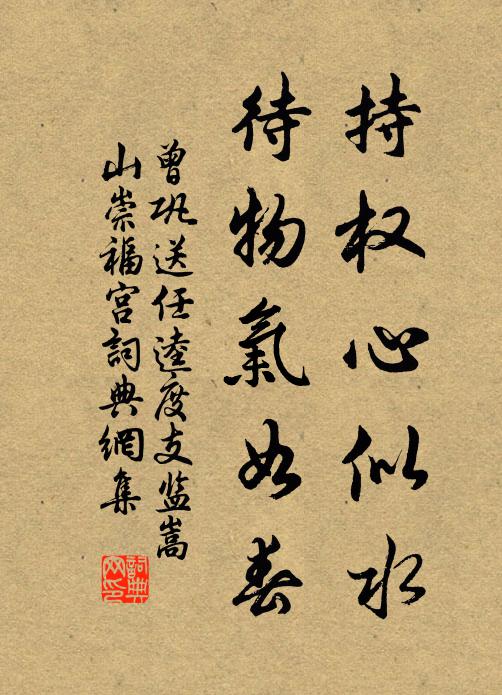 持权心似水
待物氣如春
曾巩送任逵度支监嵩
山崇福宫詞典網集
詞典
网印